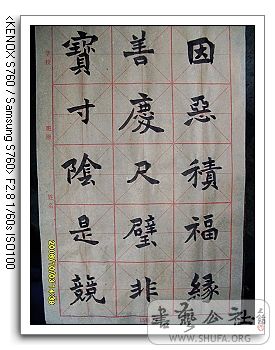 因惡積福緣
善慶尺璧非
寶寸陰是競
<KENOX S760 / Samsung S760> F2.8 1/60s ISO100
書藝公社
WWW.SHUFA.ORG